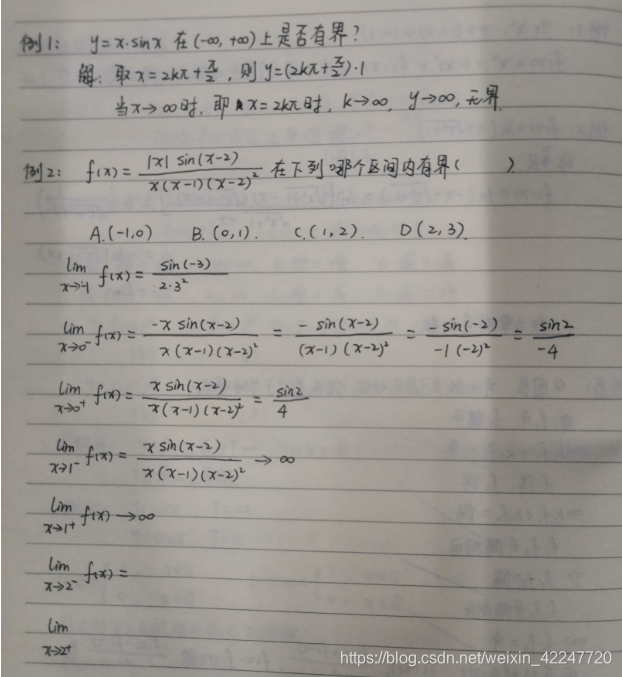 例1: y=x·sinx 在(-∞, +∞)上是否有界?
解: 取 x=2kπ+π/2, 则 y=(2kπ+π/2)·1
当x→∞时, 即 x=2kπ时, k→∞, y→∞, 无界.
例2: f(x)= |x| sin(x-2) / x(x-1)(x-2)² 在下列哪个区间内有界( )
A.(-1,0) B.(0,1). C.(1,2). D(2,3).
lim x→-1 f(x)= sin(-3) / 2·3²
lim x→0⁻ f(x)= -x sin(x-2) / x(x-1)(x-2)² = - sin(x-2) / (x-1)(x-2)² = - sin(-2) / -1(-2)² = sin2 / -4
lim x→0⁺ f(x)= x sin(x-2) / x(x-1)(x-2)² = sin2 / 4
lim x→1⁻ f(x)= x sin(x-2) / x(x-1)(x-2)² → ∞
lim x→1⁺ f(x)→∞
lim x→2⁻ f(x)=
lim x→2⁺
https://blog.csdn.net/weixin_42247720